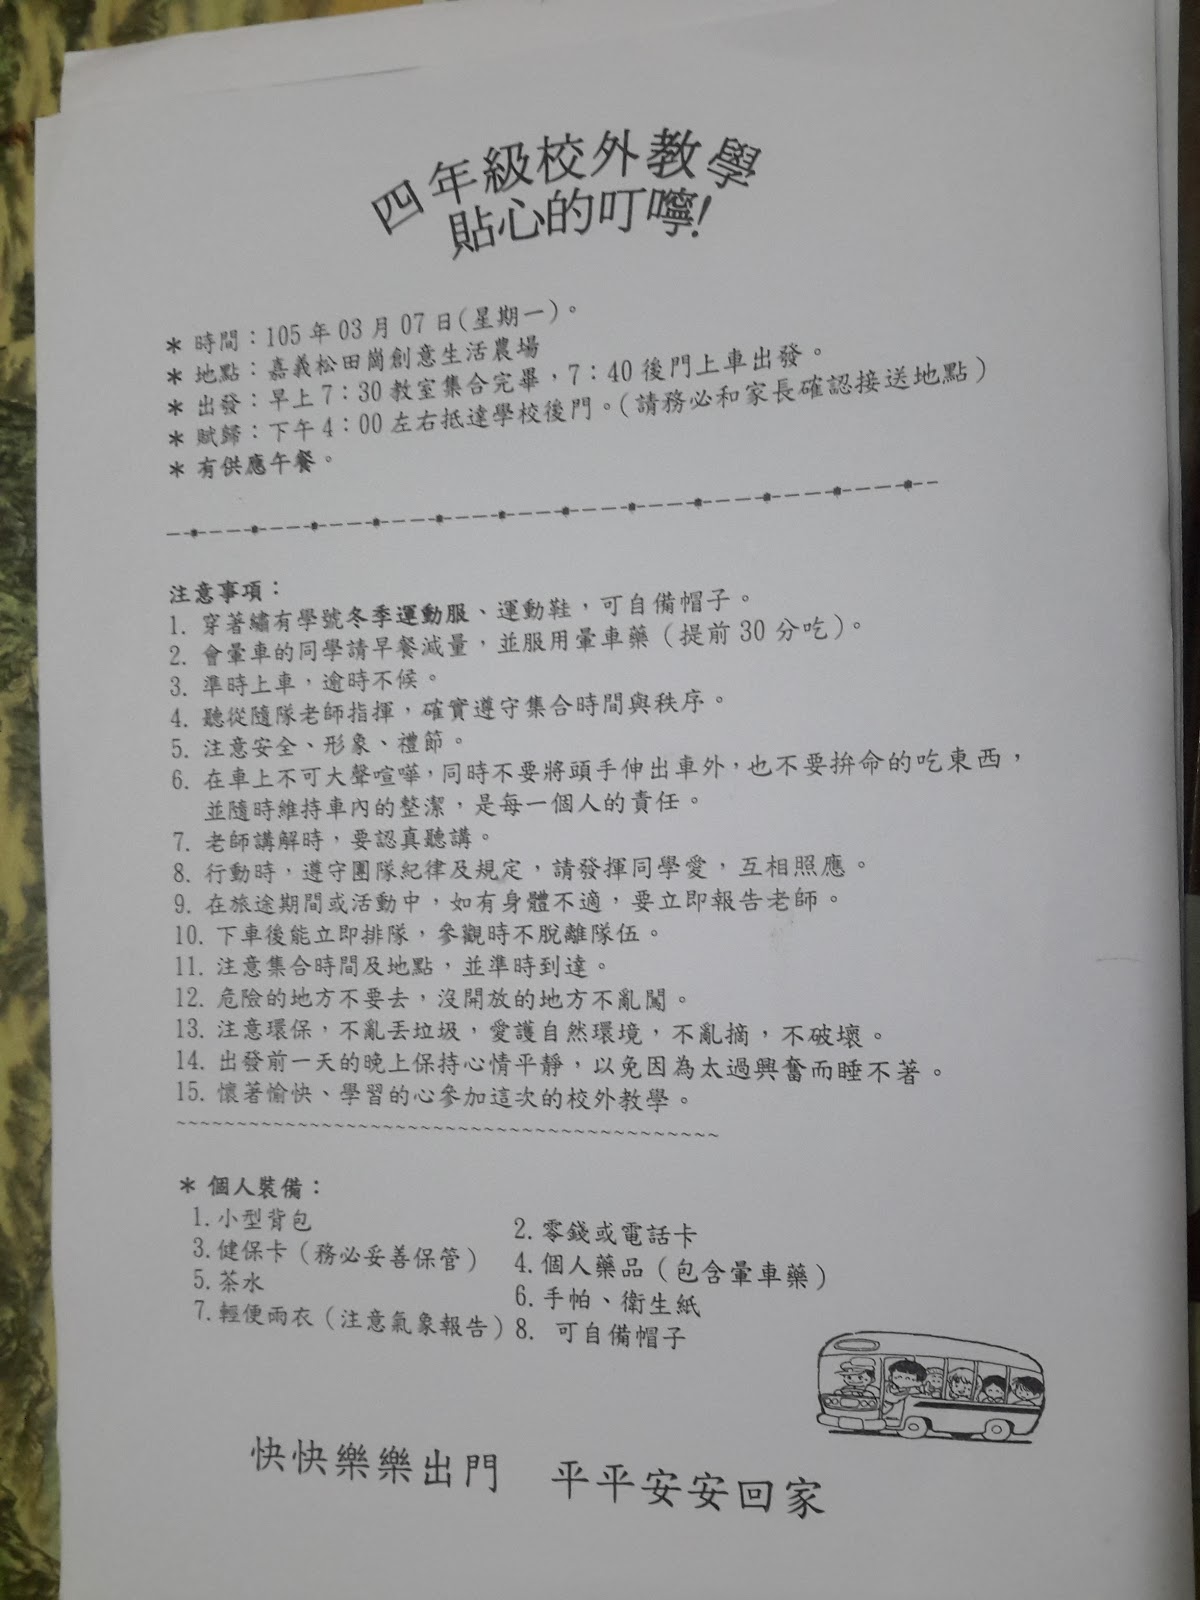 四年級校外教學
貼心的叮嚀!
* 時間：105 年 03 月 07 日(星期一)。
* 地點：嘉義松田崗創意生活農場
* 出發：早上 7：30 教室集合完畢，7：40 後門上車出發。
* 賦歸：下午 4：00 左右抵達學校後門。(請務必和家長確認接送地點)
* 有供應午餐。
注意事項：
1. 穿著繡有學號冬季運動服、運動鞋，可自備帽子。
2. 會暈車的同學請早餐減量，並服用暈車藥（提前 30 分吃）。
3. 準時上車，逾時不候。
4. 聽從隨隊老師指揮，確實遵守集合時間與秩序。
5. 注意安全、形象、禮節。
6. 在車上不可大聲喧嘩，同時不要將頭手伸出車外，也不要拚命的吃東西，
並隨時維持車內的整潔，是每一個人的責任。
7. 老師講解時，要認真聽講。
8. 行動時，遵守團隊紀律及規定，請發揮同學愛，互相照應。
9. 在旅途期間或活動中，如有身體不適，要立即報告老師。
10. 下車後能立即排隊，參觀時不脫離隊伍。
11. 注意集合時間及地點，並準時到達。
12. 危險的地方不要去，沒開放的地方不亂闖。
13. 注意環保，不亂丟垃圾，愛護自然環境，不亂摘，不破壞。
14. 出發前一天的晚上保持心情平靜，以免因為太過興奮而睡不著。
15. 懷著愉快、學習的心參加這次的校外教學。
~~~~~~~~~~~~~~~~~~~~~~~~~~~~~~~~~~~~~~~~~~~~
* 個人裝備：
1.小型背包 2.零錢或電話卡
3.健保卡（務必妥善保管） 4.個人藥品（包含暈車藥）
5.茶水 6.手帕、衛生紙
7.輕便雨衣（注意氣象報告）8. 可自備帽子
快快樂樂出門 平平安安回家